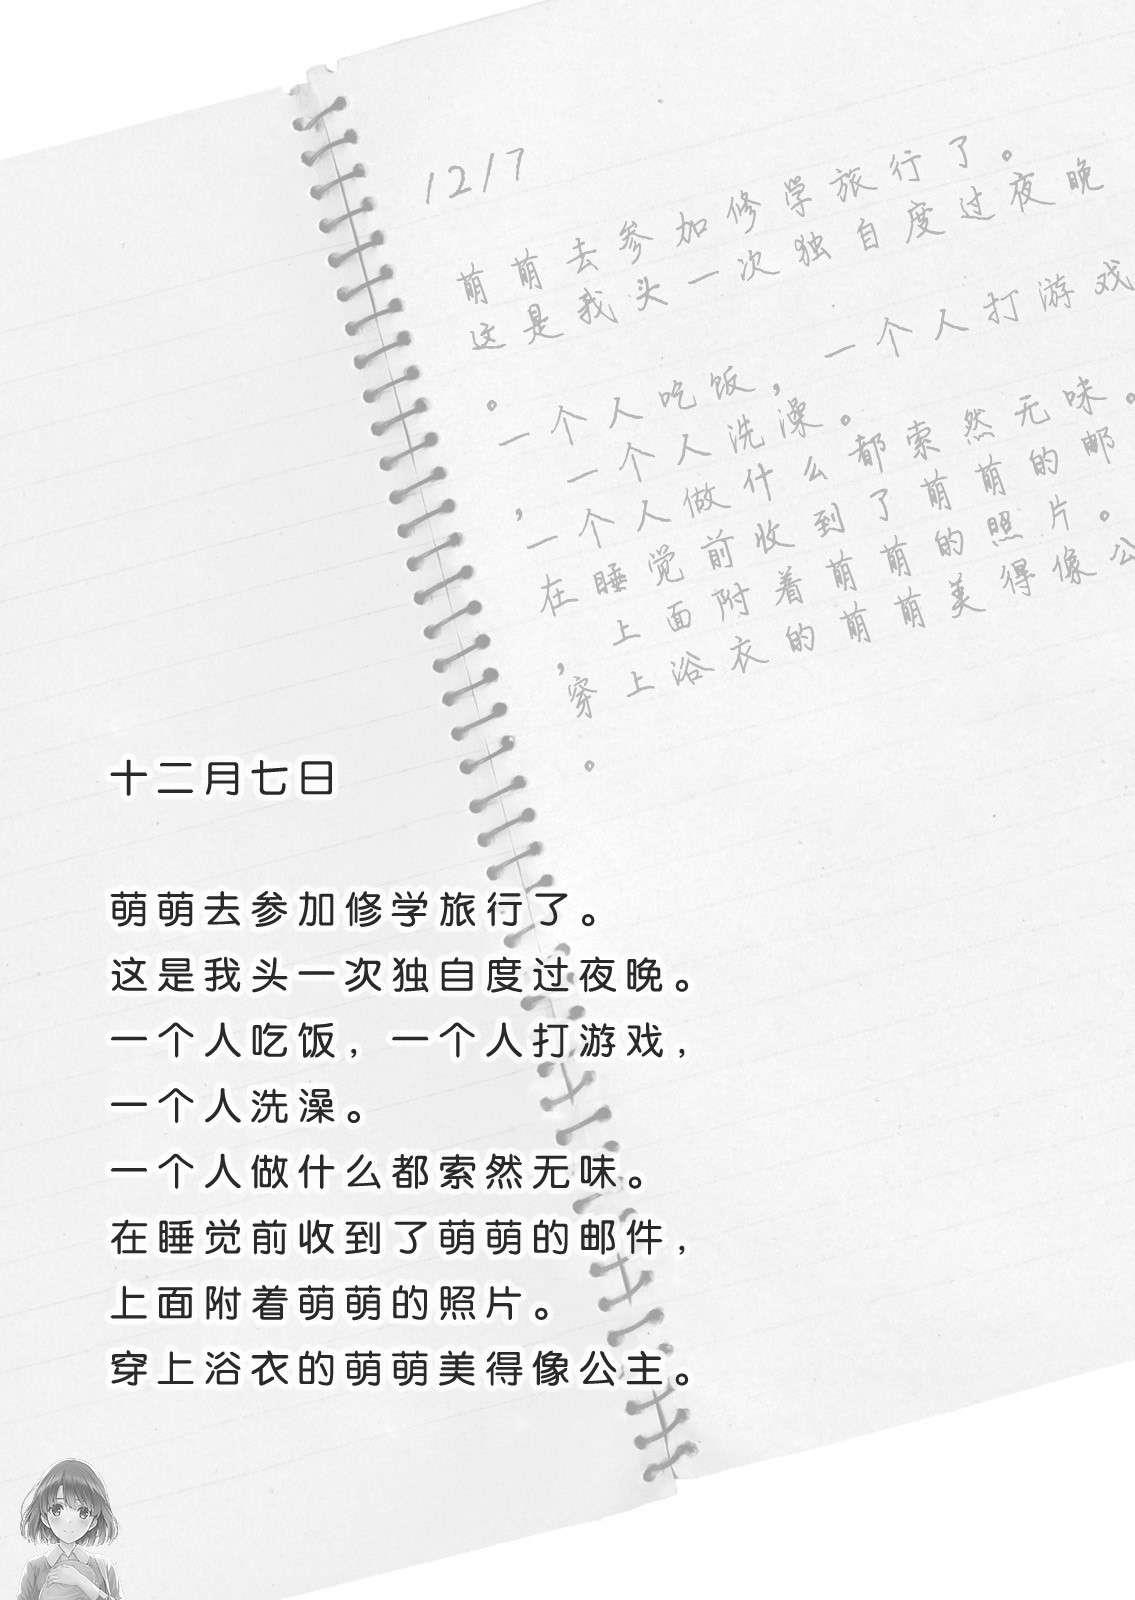 12/7
萌萌去参加修学旅行了。
这是我头一次独自度过夜晚
。一个人吃饭，一个人打游戏
，一个人洗澡。
一个人做什么都索然无味。
在睡觉前收到了萌萌的邮
，上面附着萌萌的照片。
穿上浴衣的萌萌美得像公
。
十二月七日
萌萌去参加修学旅行了。
这是我头一次独自度过夜晚。
一个人吃饭，一个人打游戏，
一个人洗澡。
一个人做什么都索然无味。
在睡觉前收到了萌萌的邮件，
上面附着萌萌的照片。
穿上浴衣的萌萌美得像公主。